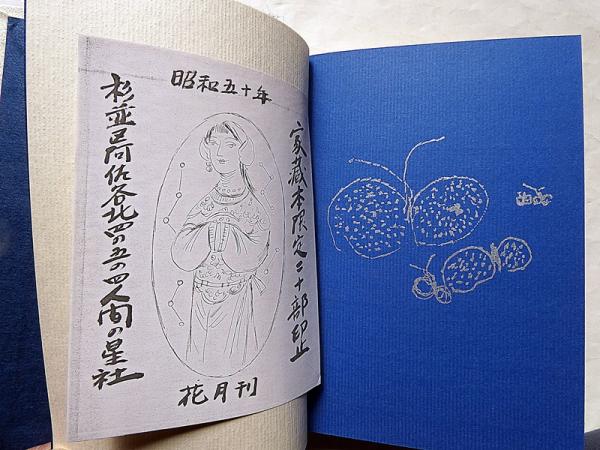 昭和五十年
家蔵本限定二十部印止
杉並区阿佐谷北四の五の四人間の星社
花月刊